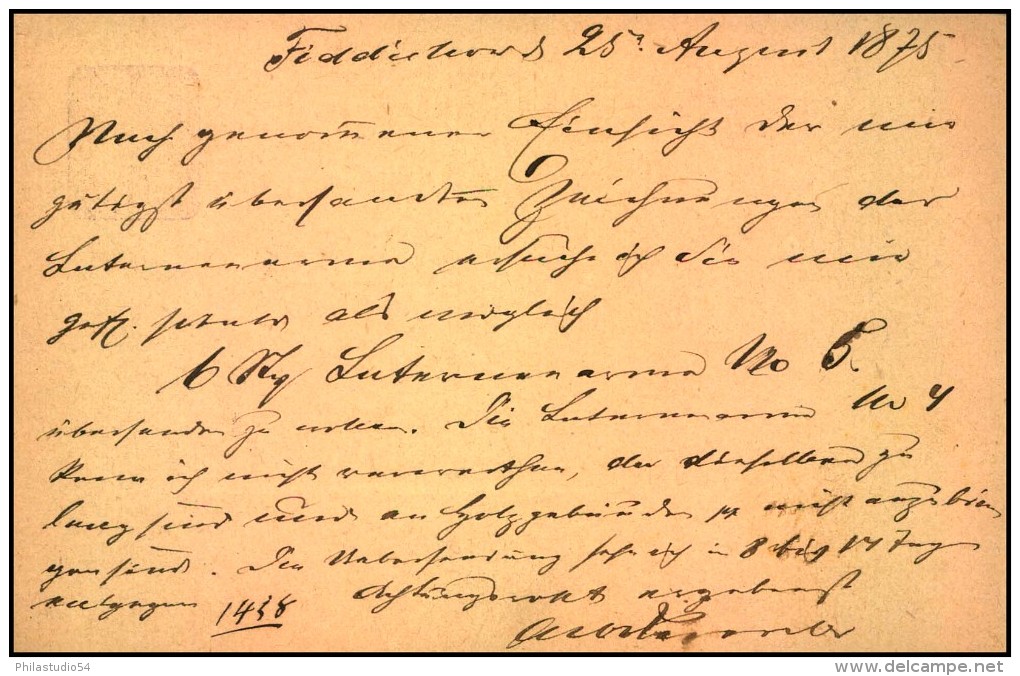 Fiddichow d 25t August 1875
Nach genommener Einsicht der mir
gütigst übersandten Zeichnungen der
Laternenarme ersuche ich Sie mir
gefl. sobald als möglich
6 Stg Laternenarme No 5.
übersenden zu wollen. Die Laternenarme No 4
kann ich nicht verwerthen, da dieselben zu
lang sind und an Holzgebäuden nicht anzubrin
gen sind. Der Uebersendung sehe ich in 8 bis 14 Tagen
entgegen Achtungsvoll ergebenst
1438
Philastudio54
www.delcampe.net